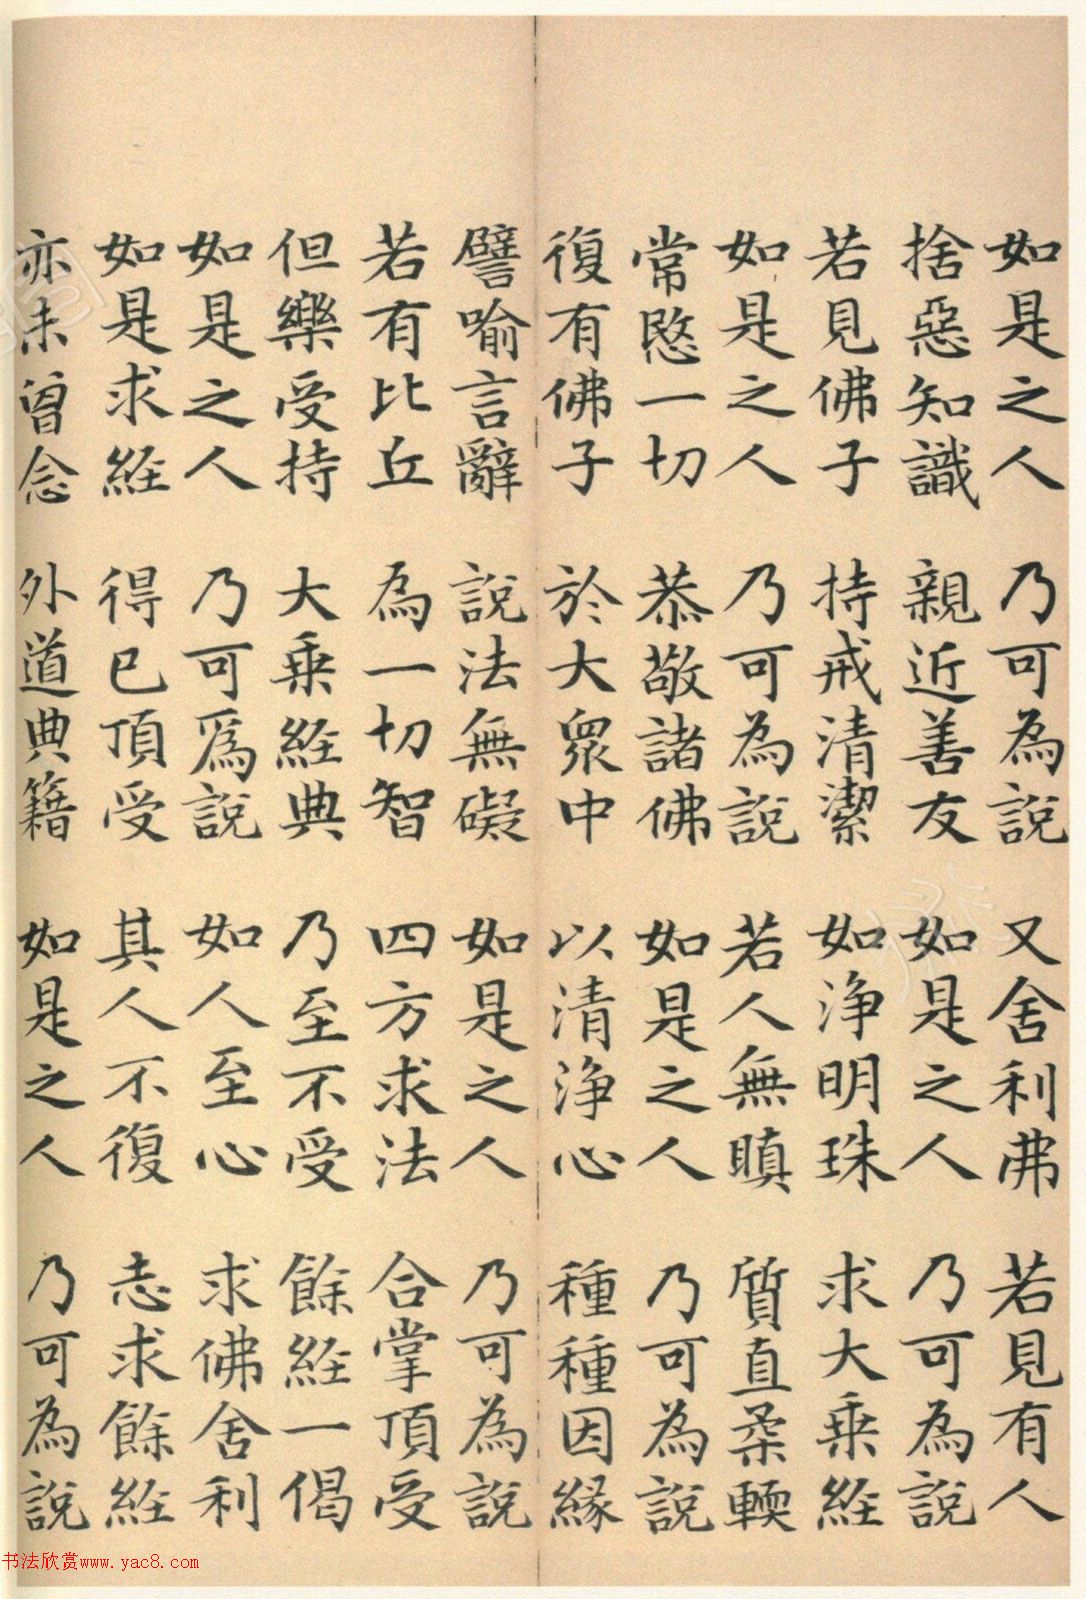 如是之人 乃可為說 又舍利弗 若見有人
捨惡知識 親近善友 如是之人 乃可為說
若見佛子 持戒清潔 如淨明珠 求大乘經
如是之人 乃可為說 若人無瞋 質直柔輭
常愍一切 恭敬諸佛 如是之人 乃可為說
復有佛子 於大眾中 以清淨心 種種因緣
譬喻言辭 說法無礙 如是之人 乃可為說
若有比丘 為一切智 四方求法 合掌頂受
但樂受持 大乘經典 乃至不受 餘經一偈
如是之人 乃可爲說 如人至心 求佛舍利
如是求經 得已頂受 其人不復 志求餘經
亦未曾念 外道典籍 如是之人 乃可為說
书法欣赏www.yac8.com